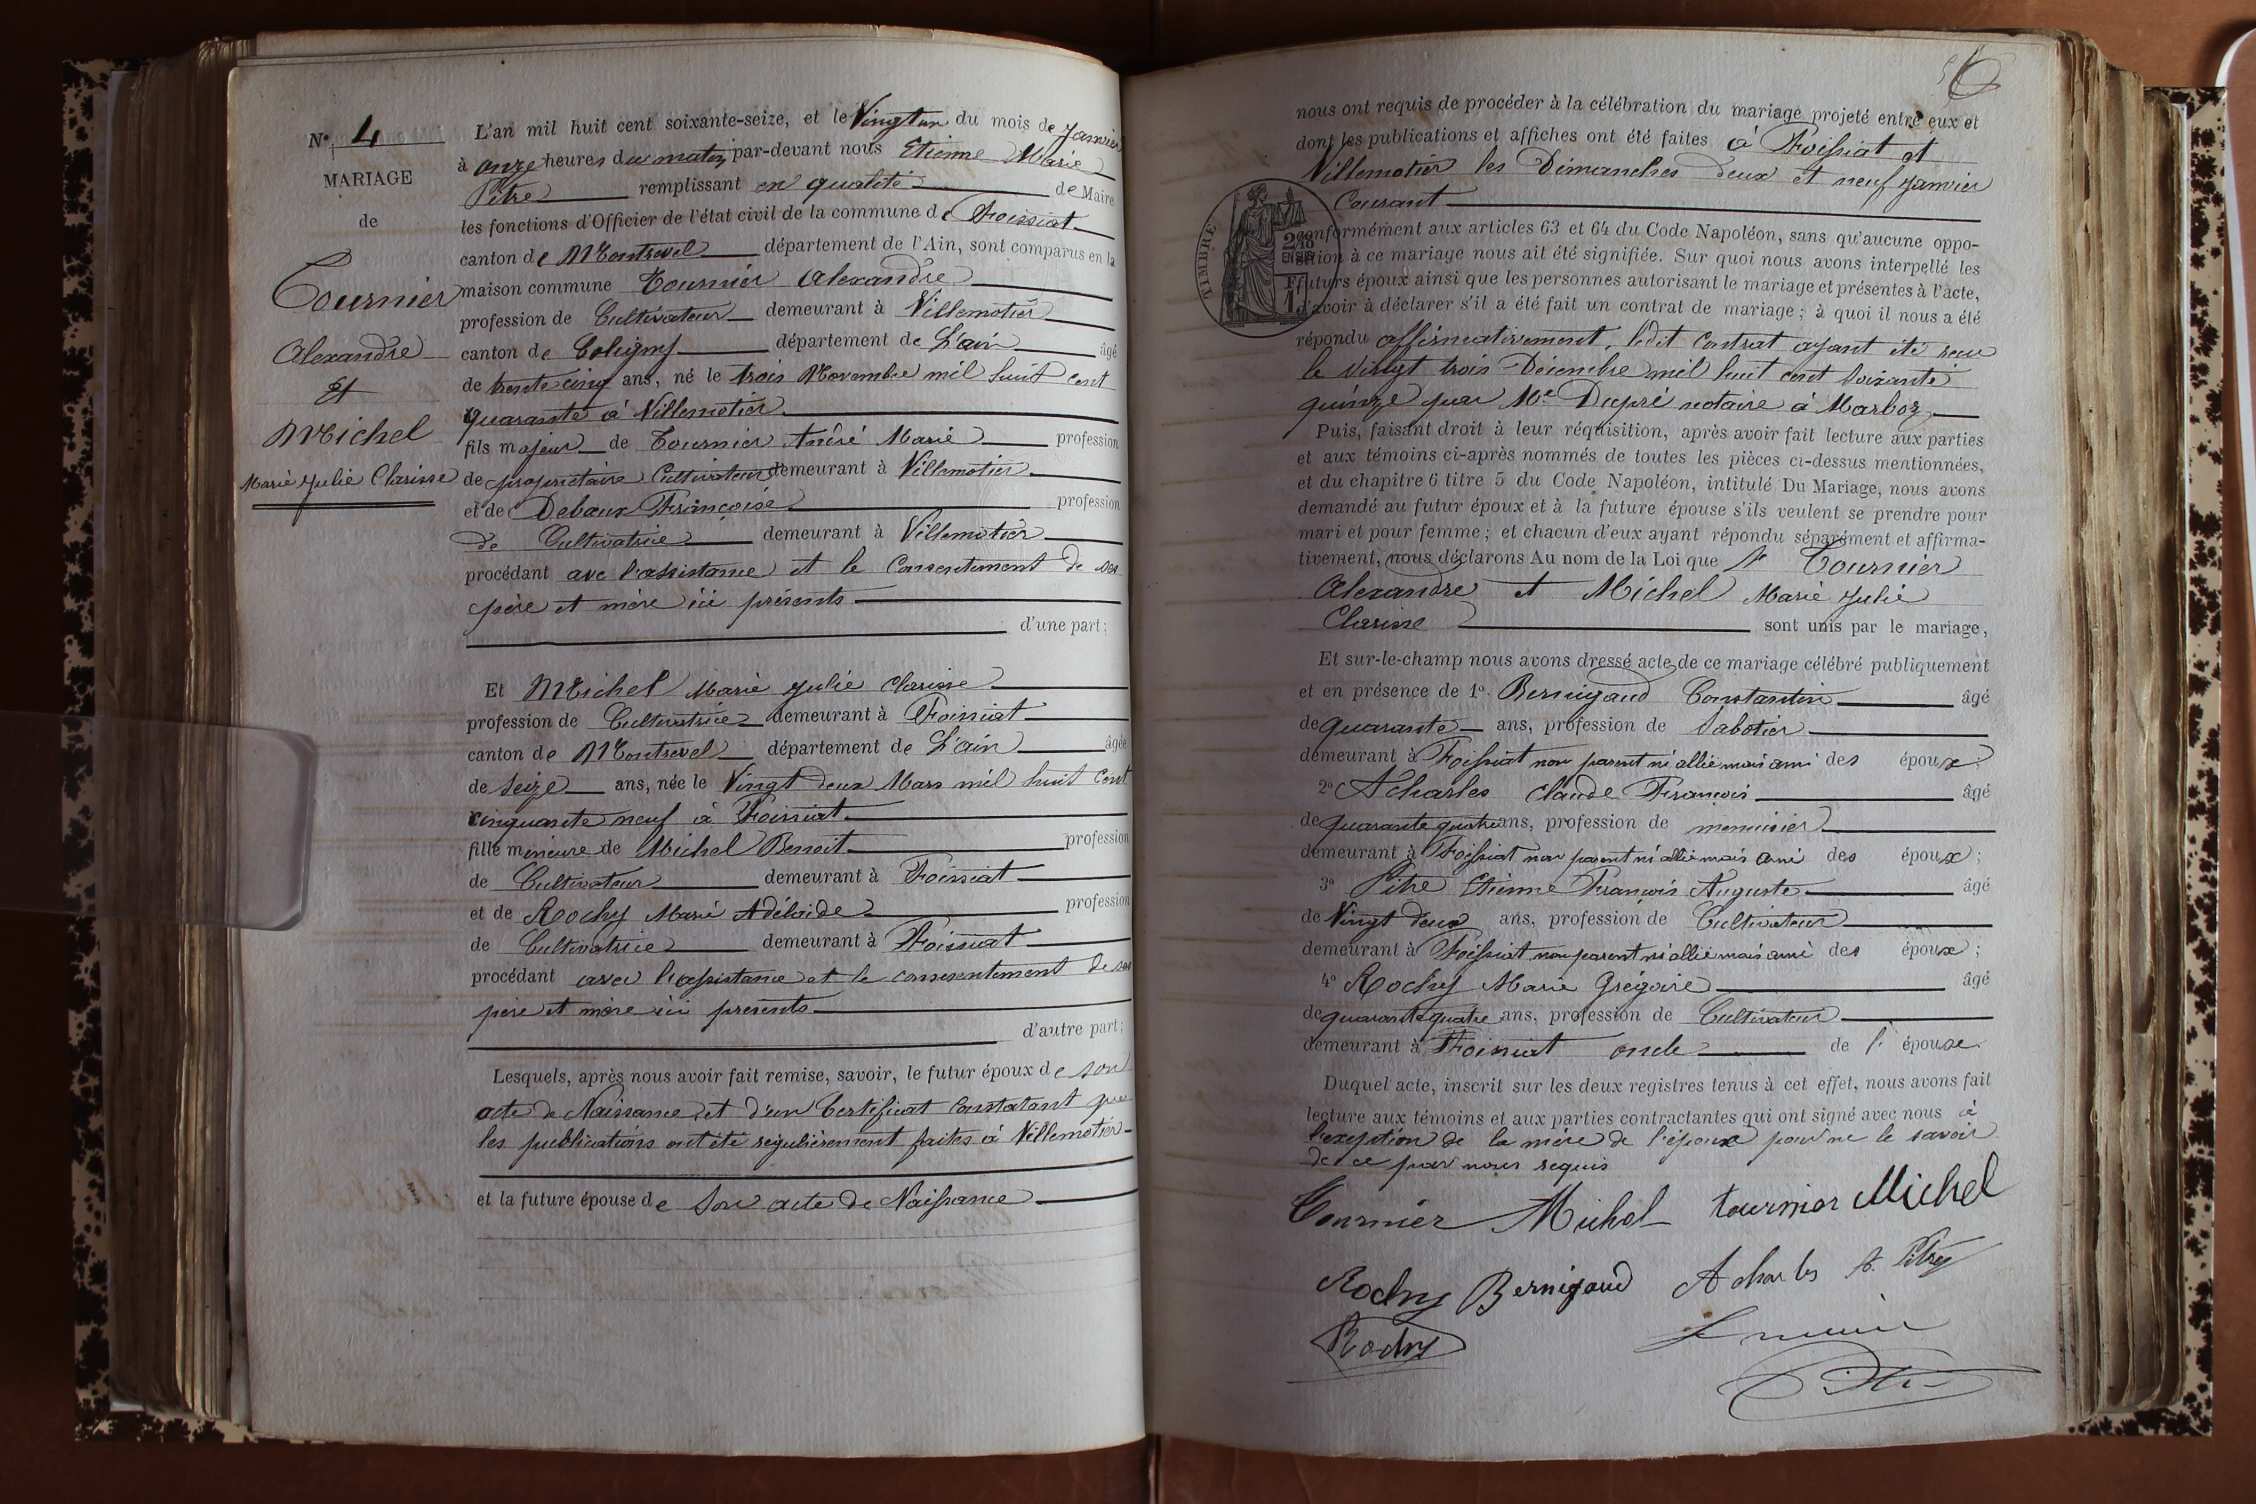 N° 4
MARIAGE
de
Tournier
Alexandre
Et
Michel
Marie Julie Clarisse
L'an mil huit cent soixante-seize, et le Vingt un du mois de Janvier
à onze heures du matin par-devant nous Etienne Marie
Pitre remplissant en qualité de Maire
les fonctions d'Officier de l'état civil de la commune de Foissiat
canton de Montrevel département de l'Ain, sont comparus en la
maison commune Tournier Alexandre
profession de Cultivateur demeurant à Villemotier
canton de Coligny département de L'ain âgé
de trente cinq ans, né le trois Novembre mil huit cent
quarante à Villemotier
fils majeur de Tournier André Marie profession
de propriétaire Cultivateur demeurant à Villemotier
et de Debaux Françoise profession
de Cultivatrice demeurant à Villemotier
procédant avec l'assistance et le Consentement de ses
père et mère ici présents
d'une part;
Et Michel Marie Julie Clarisse
profession de Cultivatrice demeurant à Foissiat
canton de Montrevel département de L'ain âgée
de seize ans, née le Vingt deux Mars mil huit Cent
cinquante neuf à Foissiat
fille mineure de Michel Benoit profession
de Cultivateur demeurant à Foissiat
et de Rochy Marie Adélaïde profession
de Cultivatrice demeurant à Foissiat
procédant avec l'assistance et le consentement de ses
père et mère ici présents
d'autre part;
Lesquels, après nous avoir fait remise, savoir, le futur époux de son
acte de Naissance et d'un Certificat Constatant que
les publications ont été regulièrement faites à Villemotier
et la future épouse de Son acte de Naissance
nous ont requis de procéder à la célébration du mariage projeté entre eux et
dont les publications et affiches ont été faites à Foissiat et
Villemotier les Dimanches deux et neuf Janvier
Courant
TIMBRE
conformément aux articles 63 et 64 du Code Napoléon, sans qu'aucune oppo-
sition à ce mariage nous ait été signifiée. Sur quoi nous avons interpellé les
futurs époux ainsi que les personnes autorisant le mariage et présentes à l'acte,
d'avoir à déclarer s'il a été fait un contrat de mariage; à quoi il nous a été
répondu affirmativement, ledit Contrat ayant été reçu
le Vingt trois Décembre mil huit cent soixante
quinze par Me Dupré notaire à Marboz
Puis, faisant droit à leur réquisition, après avoir fait lecture aux parties
et aux témoins ci-après nommés de toutes les pièces ci-dessus mentionnées,
et du chapitre 6 titre 5 du Code Napoléon, intitulé Du Mariage, nous avons
demandé au futur époux et à la future épouse s'ils veulent se prendre pour
mari et pour femme; et chacun d'eux ayant répondu séparément et affirma-
tivement, nous déclarons Au nom de la Loi que Tournier
Alexandre et Michel Marie Julie
Clarisse sont unis par le mariage,
Et sur-le-champ nous avons dressé acte de ce mariage célébré publiquement
et en présence de 1° Bernigaud Constantin âgé
de quarante ans, profession de Sabotier
demeurant à Foissiat non parent ni allié mais ami des époux
2° Acharles Claude François âgé
de quarante quatre ans, profession de menuisier
demeurant à Foissiat non parent ni allié mais ami des époux;
3° Pitre Etienne François Auguste âgé
de Vingt deux ans, profession de Cultivateur
demeurant à Foissiat non parent ni allié mais ami des époux;
4° Rochy Marie Grégoire âgé
de quarante quatre ans, profession de Cultivateur
demeurant à Foissiat oncle de l'épouse.
Duquel acte, inscrit sur les deux registres tenus à cet effet, nous avons fait
lecture aux témoins et aux parties contractantes qui ont signé avec nous à
l'exeption de la mère de l'époux pour ne le savoir
de ce par nous requis
Tournier Michel tournier Michel
Rochy Bernigaud Acharles
Rochy